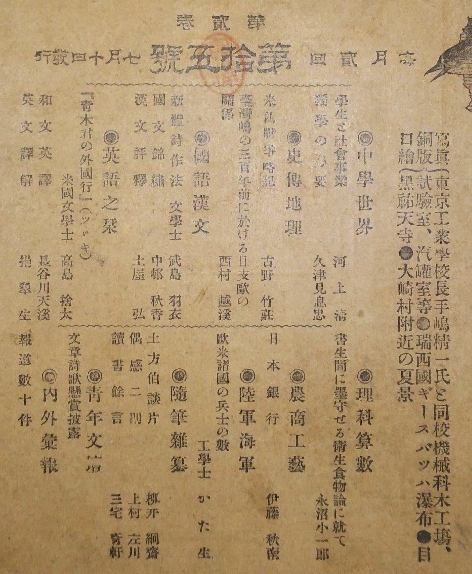 第貳卷
毎月貳回
第拾五號
七月十四日發行
寫真(東京工業學校長手島精一氏と同校機械科木工場、
銅版(試驗室、汽罐室等●瑞西國ギースバッハ瀑布●目
口繪(黑祐天寺●大崎村附近の夏景
●中學世界
學生と社會事業 河上清
獨學の必要 久津見息忠
●史傳地理
米西戰爭略記 古野竹莊
臺灣島の三百年前に於ける日支歐の關係 西村越溪
●國語漢文
新體詩作法 文學士 武島羽衣
國文錦繡 中邨秋香
漢文評釋 土屋弘
●英語之栞
『青木君の外國行』(ツヾキ)
米國文學士 高島捨太
和文英譯 長谷川天溪
英文譯解
●理科算數
書生間に墨守せる衛生食物論に就て 永沼小一郎
●農商工藝
日本銀行 伊藤秋
●陸軍海軍
歐米諸國の兵士の數
工學士 かた生
●隨筆雜纂
土方伯談片 柳井絅齋
偶感二則 上村左川
讀書餘言 三宅青軒
●青年文壇
文章詩歌懸賞披露
●內外彙報
報道數十件